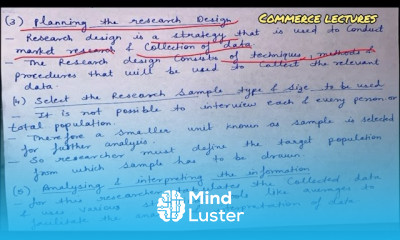 Commerce Lectures
(3) Planning the research Design
- Research design is a strategy that is used to conduct
market research & collection of data.
- The Research design consists of techniques, methods &
procedures that will be used to collect the relevant
data.
(4) Select the Research Sample type & size to be used
- It is not possible to interview each & every person or
total population.
- Therefore a smaller unit known as sample is selected
for further analysis.
- So researcher must define the target population
from which sample has to be drawn.
(5) Analysing & interpreting the information
- For this researcher the collected data
& uses various like averages to
facilitate the interpretation of data
Mind
Luster